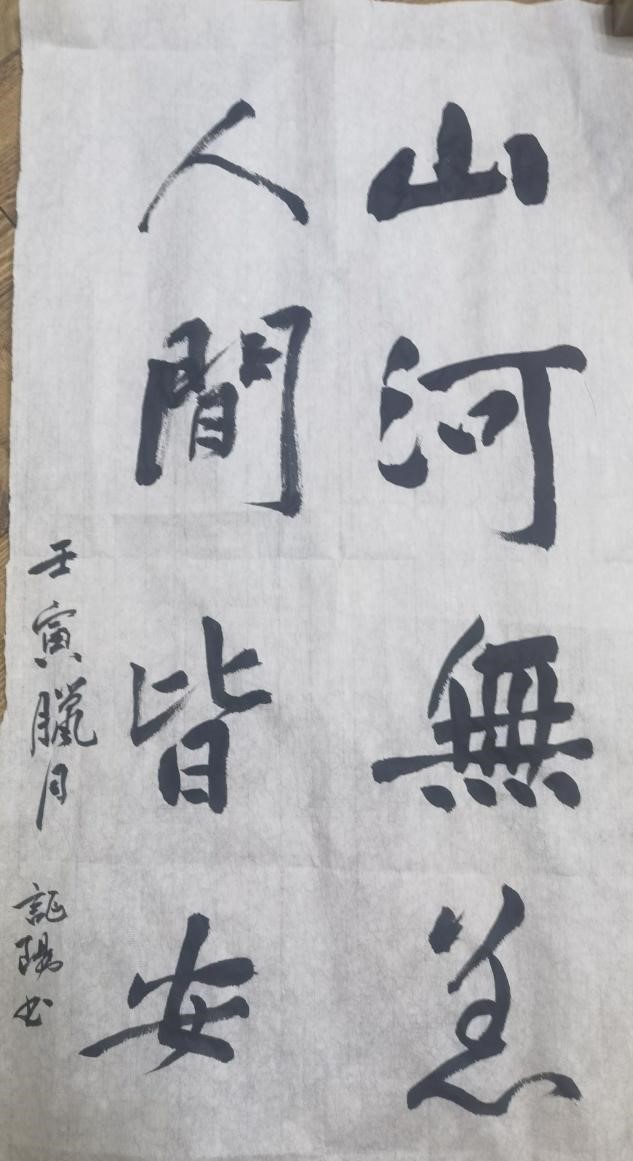 山河無恙
人間皆安
壬寅臘月
証陽书